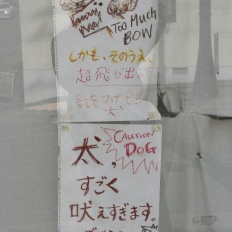 Too Much
BOW
しかも、そのうえ、
超飛び出し
気をつけて!!
CAUTION
DOG
犬、
すごく
吠えすぎます。